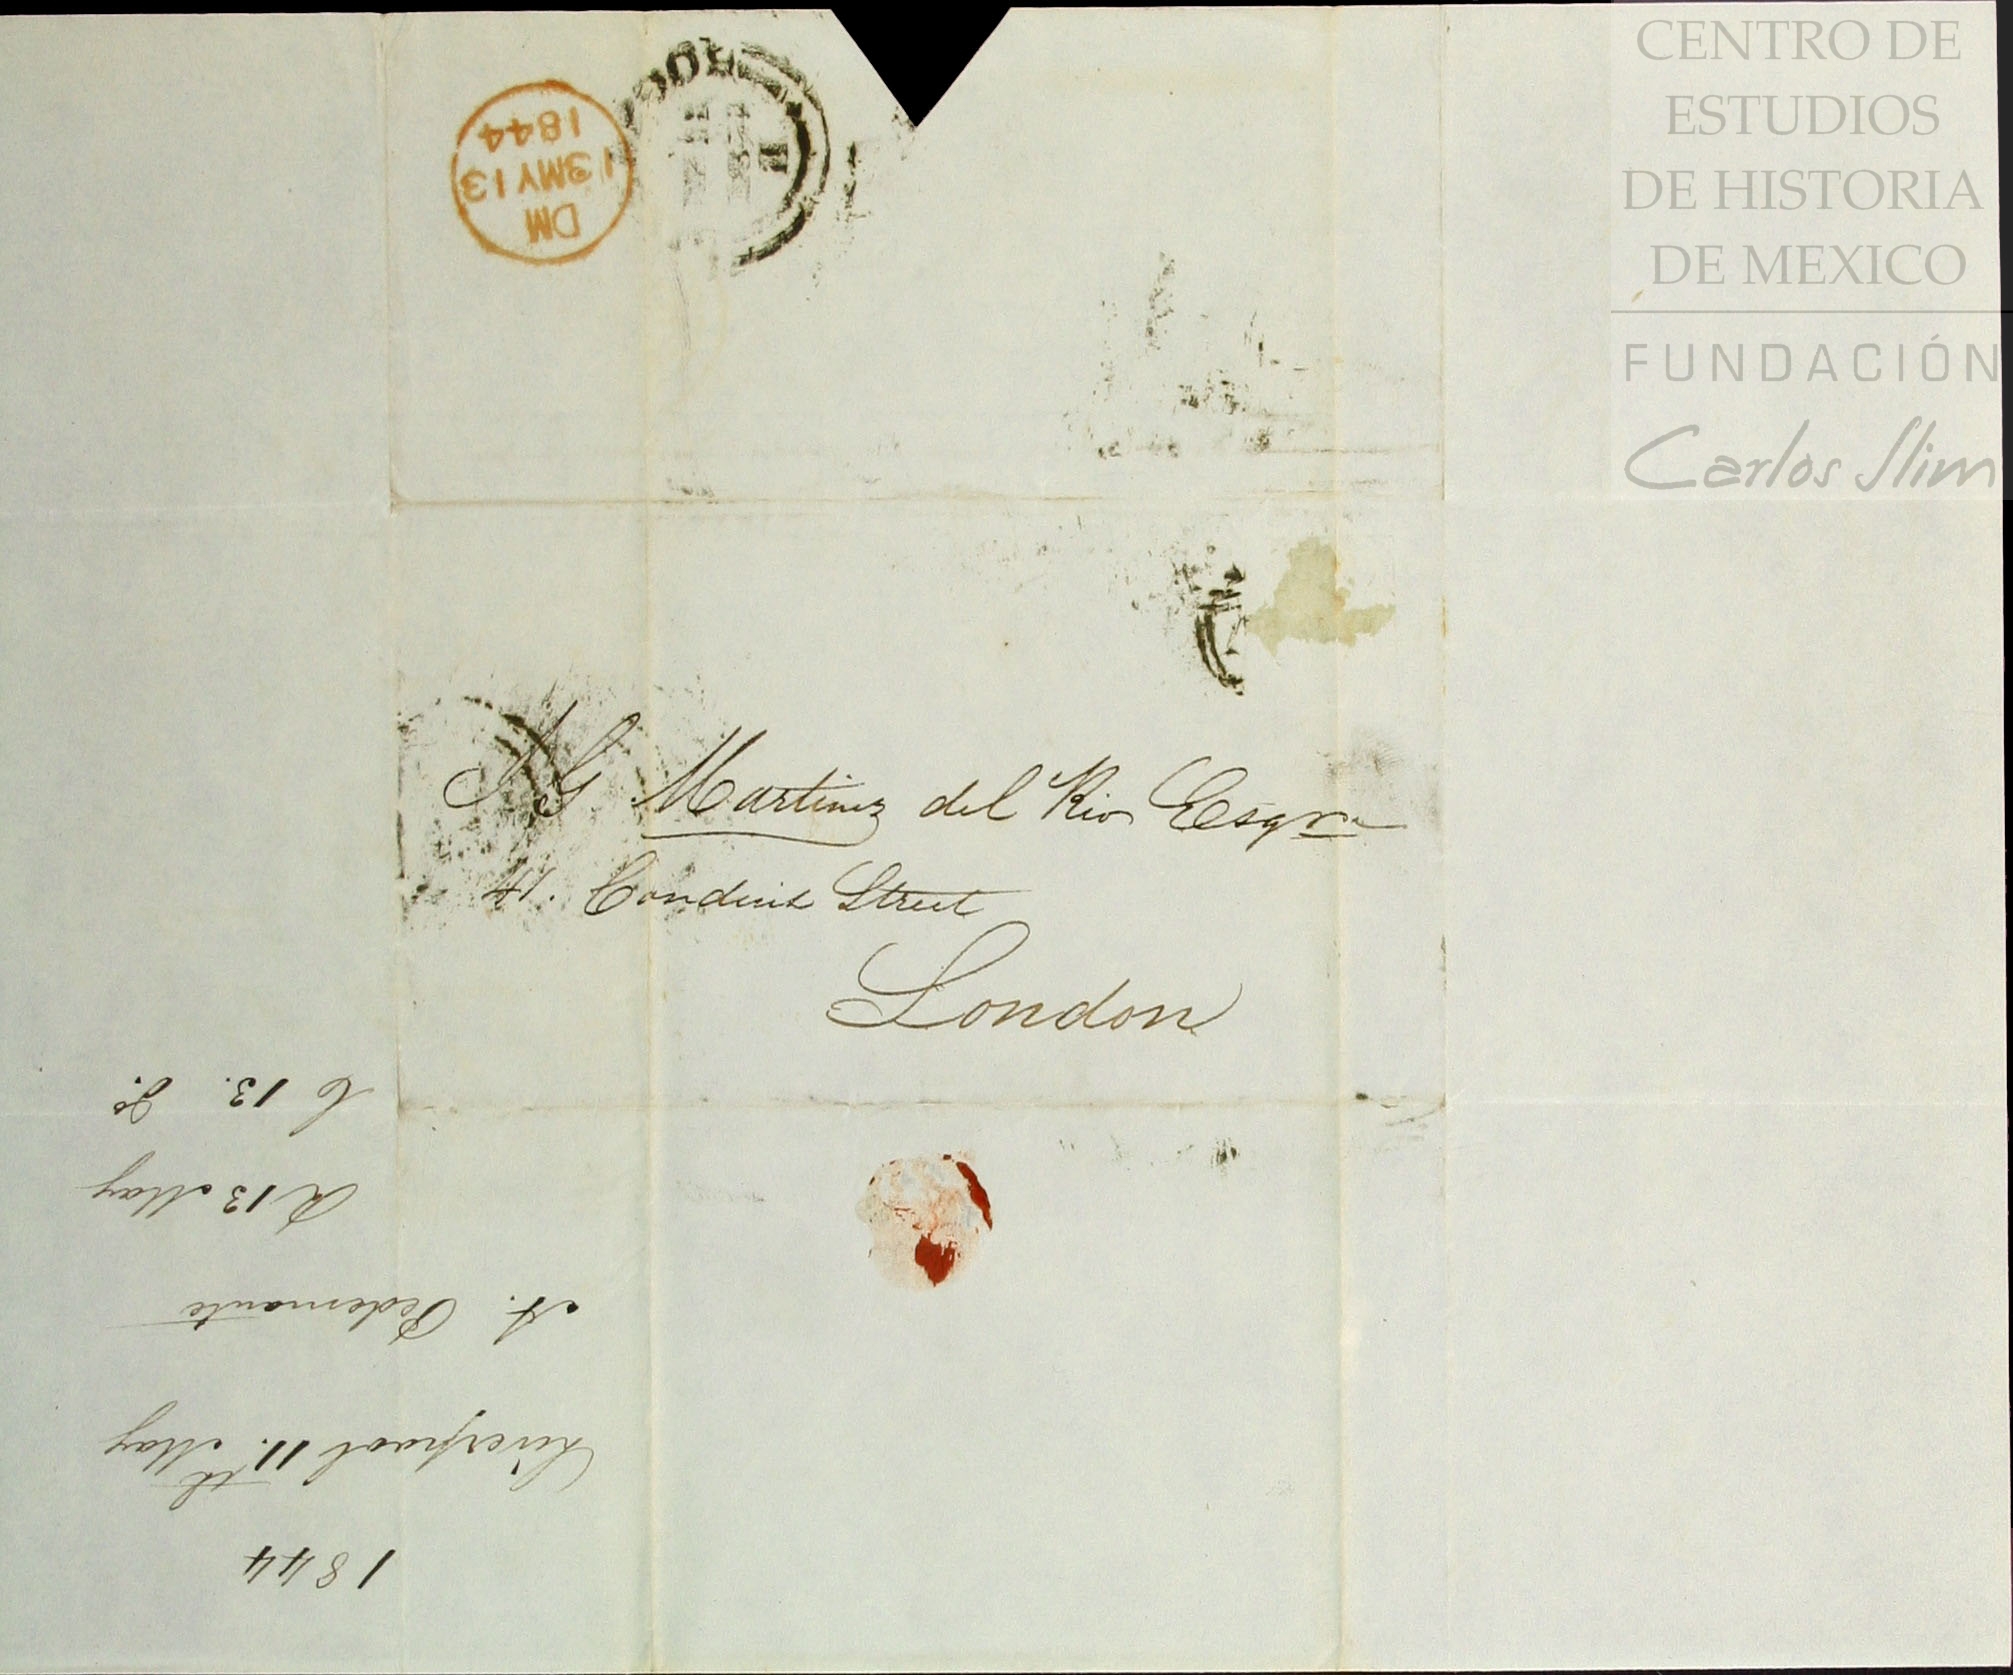 CENTRO DE
ESTUDIOS
DE HISTORIA
DE MEXICO
FUNDACIÓN
Carlos Slim
DM
13MY13
1844
J G Martinez del Rio Esqre
41. Conduit Street
London
1844
Liverpool 11th May
A. Pedemonte
R 13 May
C 13. do.